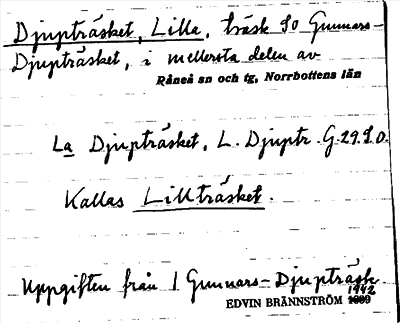 Djupträsket, Lilla, träsk SO Gunnars-
Djupträsket, i mellersta delen av
Råneå sn och tg, Norrbottens län
La Djupträsket, L. Djuptr. G.29.S.O.
Kallas Lillträsket.
Uppgiften från 1 Gunnars-Djupträsk
1942
EDVIN BRÄNNSTRÖM